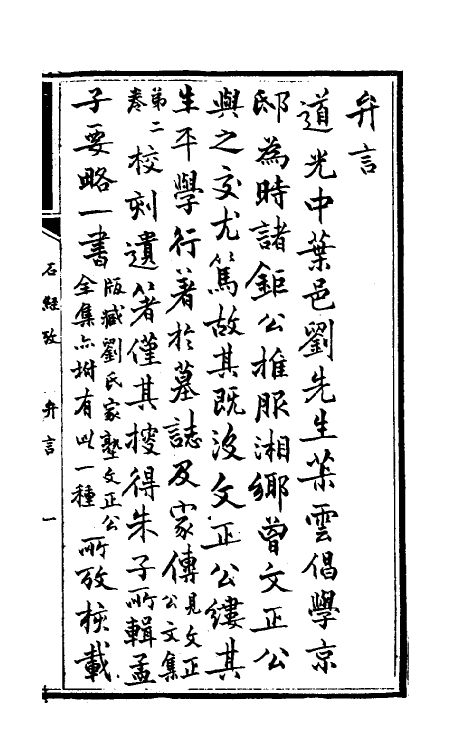 弁言
道光中葉邑劉先生茮雲倡學京
邸為時諸鉅公推服湘鄉曾文正公
與之交尤篤故其既沒文正公縷其
生平學行著於墓誌及家傳見文正公文集
第二卷校刻遺著僅其搜得朱子所輯孟
子要略一書版臧劉氏家塾文正公全集亦坿有此一種所攷核載
石經攷 弁言 一